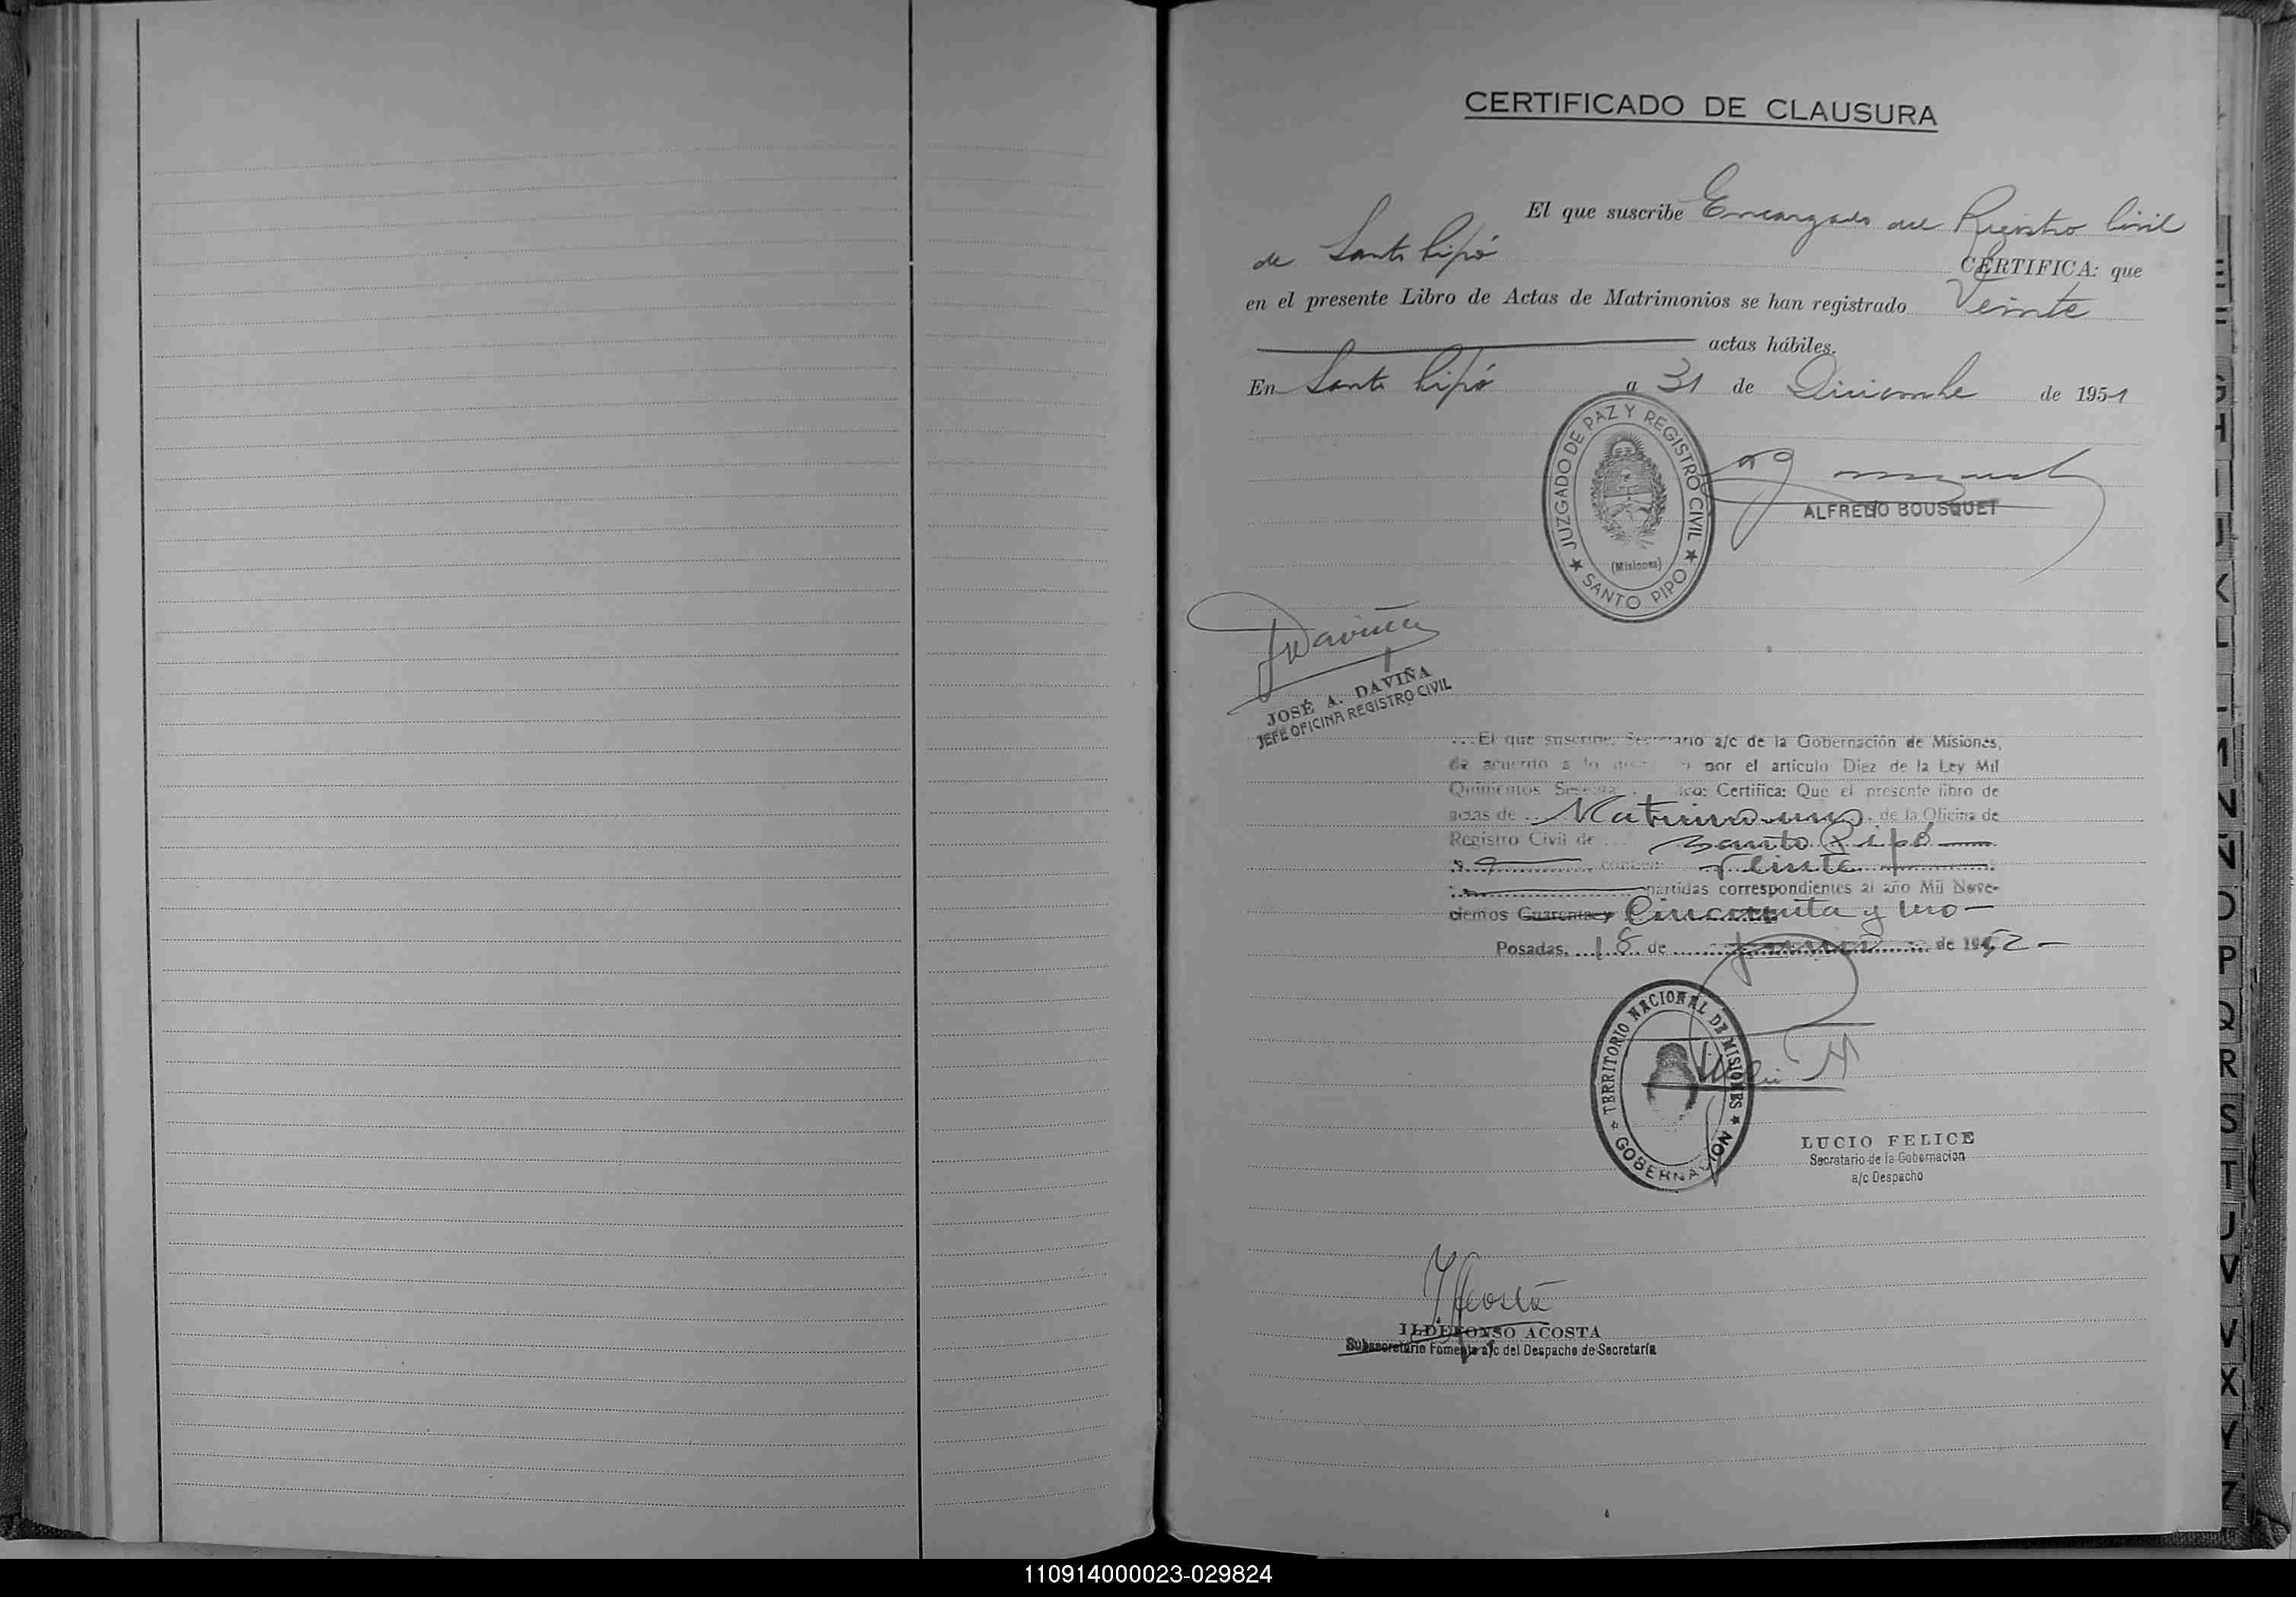 CERTIFICADO DE CLAUSURA
El que suscribe Encargado del Registro Civil
de Santo Pipó CERTIFICA: que
en el presente Libro de Actas de Matrimonios se han registrado Veinte
actas hábiles.
En Santo Pipó a 31 de Diciembre de 1951
JUZGADO DE PAZ Y REGISTRO CIVIL
(Misiones)
SANTO PIPO
ALFREDO BOUSQUET
JDaviña
JOSÉ A. DAVIÑA
JEFE OFICINA REGISTRO CIVIL
El que suscribe, Secretario a/c de la Gobernación de Misiones,
de acuerdo a lo por el artículo Diez de la Ley Mil
Quinientos Certifica: Que el presente libro de
actas de Matrimonios de la Oficina de
Registro Civil de Santo Pipó
Veinte
partidas correspondientes al año Mil Nove-
cientos Cuarenta y Cincuenta y uno
Posadas, 18 de de 1952
TERRITORIO NACIONAL DE MISIONES
GOBERNACION
LUCIO FELICE
Secretario de la Gobernacion
a/c Despacho
IAcosta
ILDEFONSO ACOSTA
Subsecretario Fomento a/c del Despacho de Secretaría
E
F
G
H
I
J
K
L
M
N
Ñ
O
P
Q
R
S
T
U
V
X
Y
Z
110914000023-029824